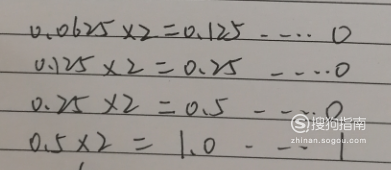 0.0625×2=0.125 ----- 0
0.125×2=0.25 -----0
0.25×2=0.5 -----0
0.5×2=1.0 ----- 1
搜狗指南
zhinan.sogou.com